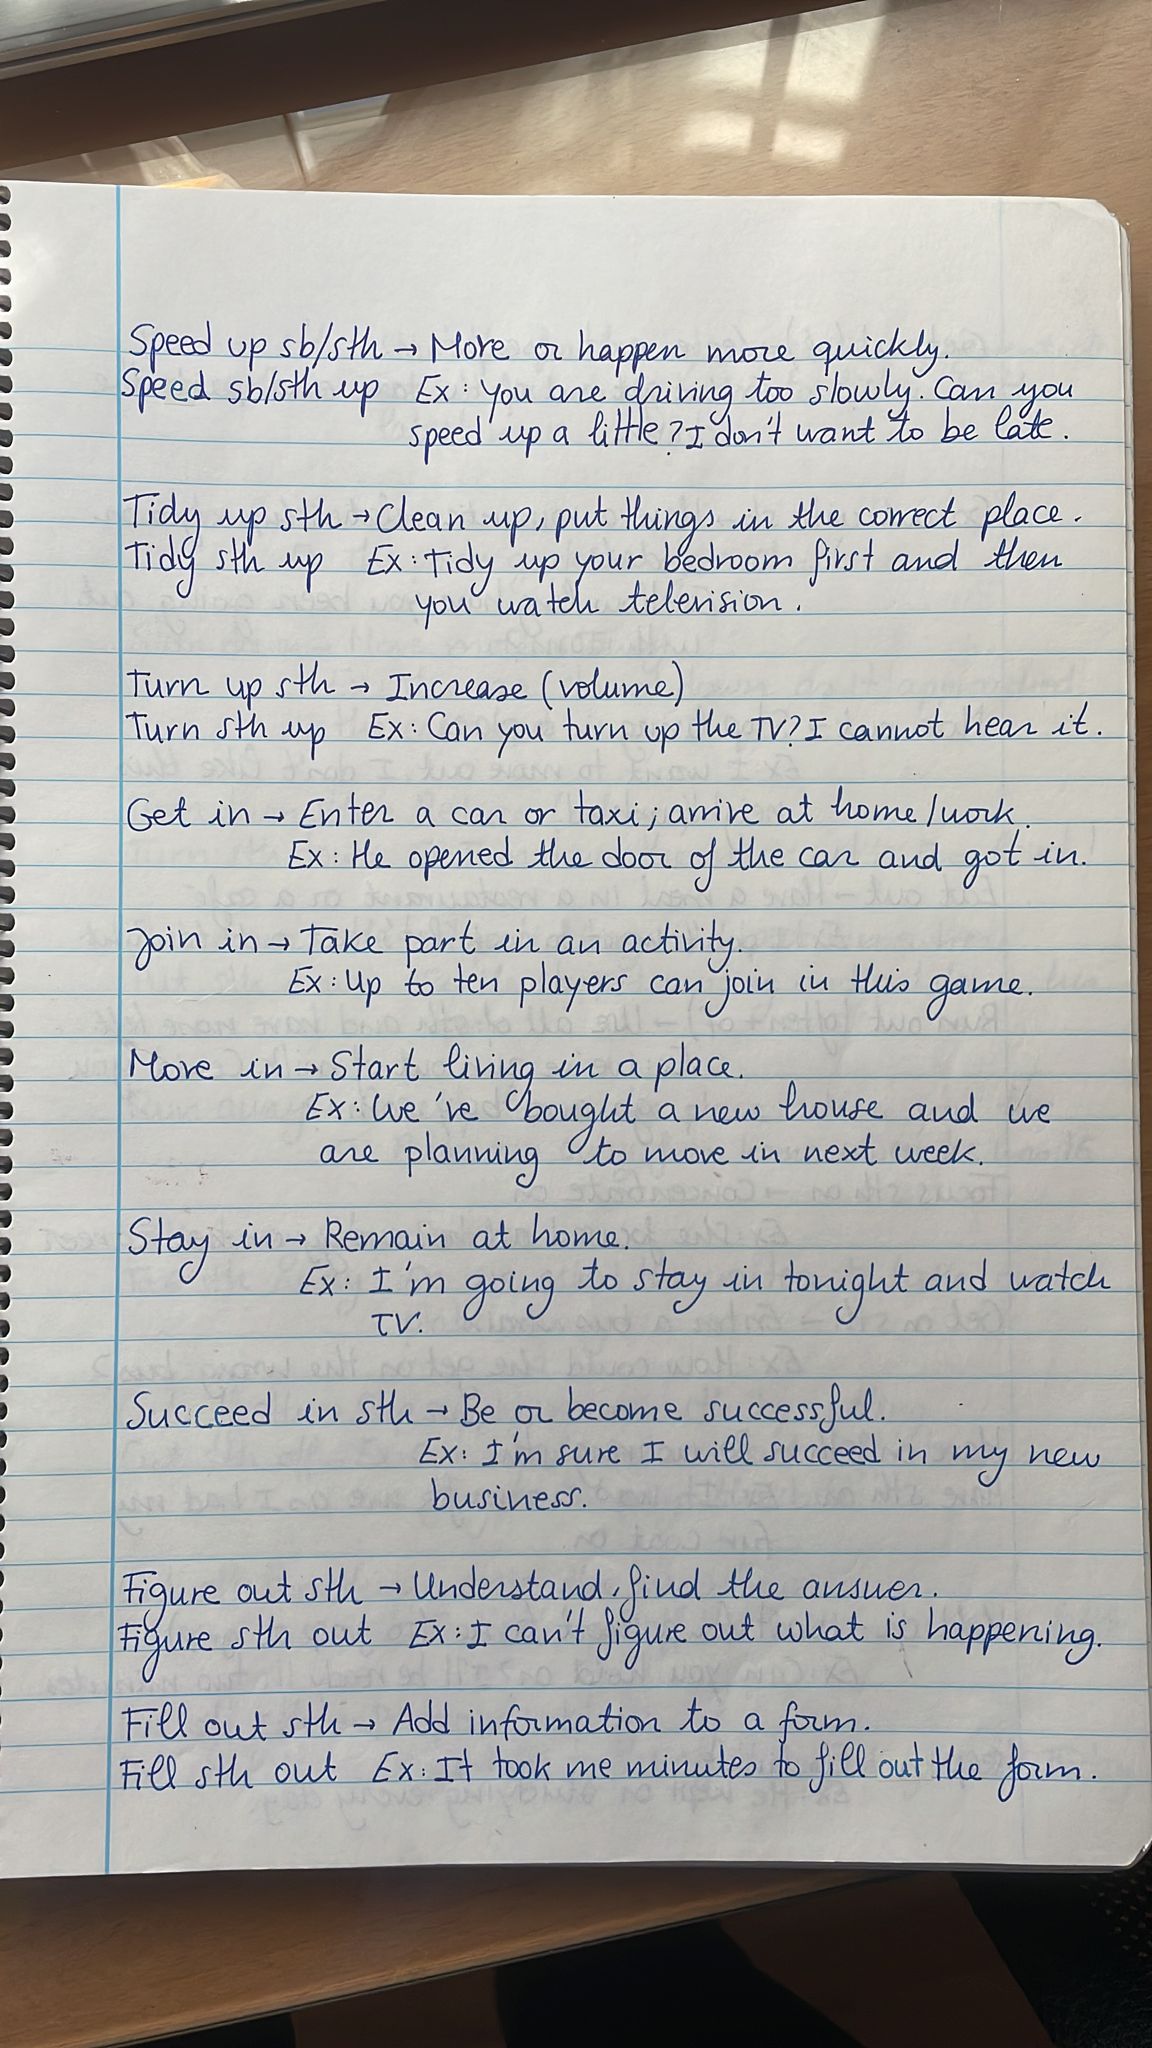 Speed up sb/sth → More or happen more quickly.
Speed sb/sth up Ex: You are driving too slowly. Can you
speed up a little? I don't want to be late.
Tidy up sth → Clean up, put things in the correct place.
Tidy sth up Ex: Tidy up your bedroom first and then
you watch television.
Turn up sth → Increase (volume)
Turn sth up Ex: Can you turn up the TV? I cannot hear it.
Get in → Enter a car or taxi; arrive at home/work.
Ex: He opened the door of the car and got in.
Join in → Take part in an activity.
Ex: Up to ten players can join in this game.
Move in → Start living in a place.
Ex: We've bought a new house and we
are planning to move in next week.
Stay in → Remain at home.
Ex: I'm going to stay in tonight and watch
TV.
Succeed in sth → Be or become successful.
Ex: I'm sure I will succeed in my new
business.
Figure out sth → Understand, find the answer.
Figure sth out Ex: I can't figure out what is happening.
Fill out sth → Add information to a form.
Fill sth out Ex: It took me minutes to fill out the form.